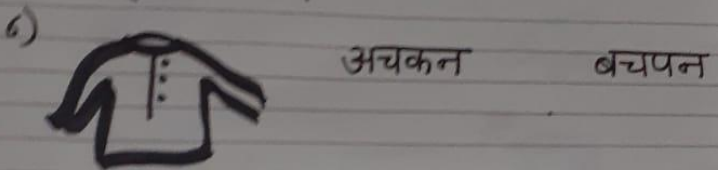 6) अचकन बचपन